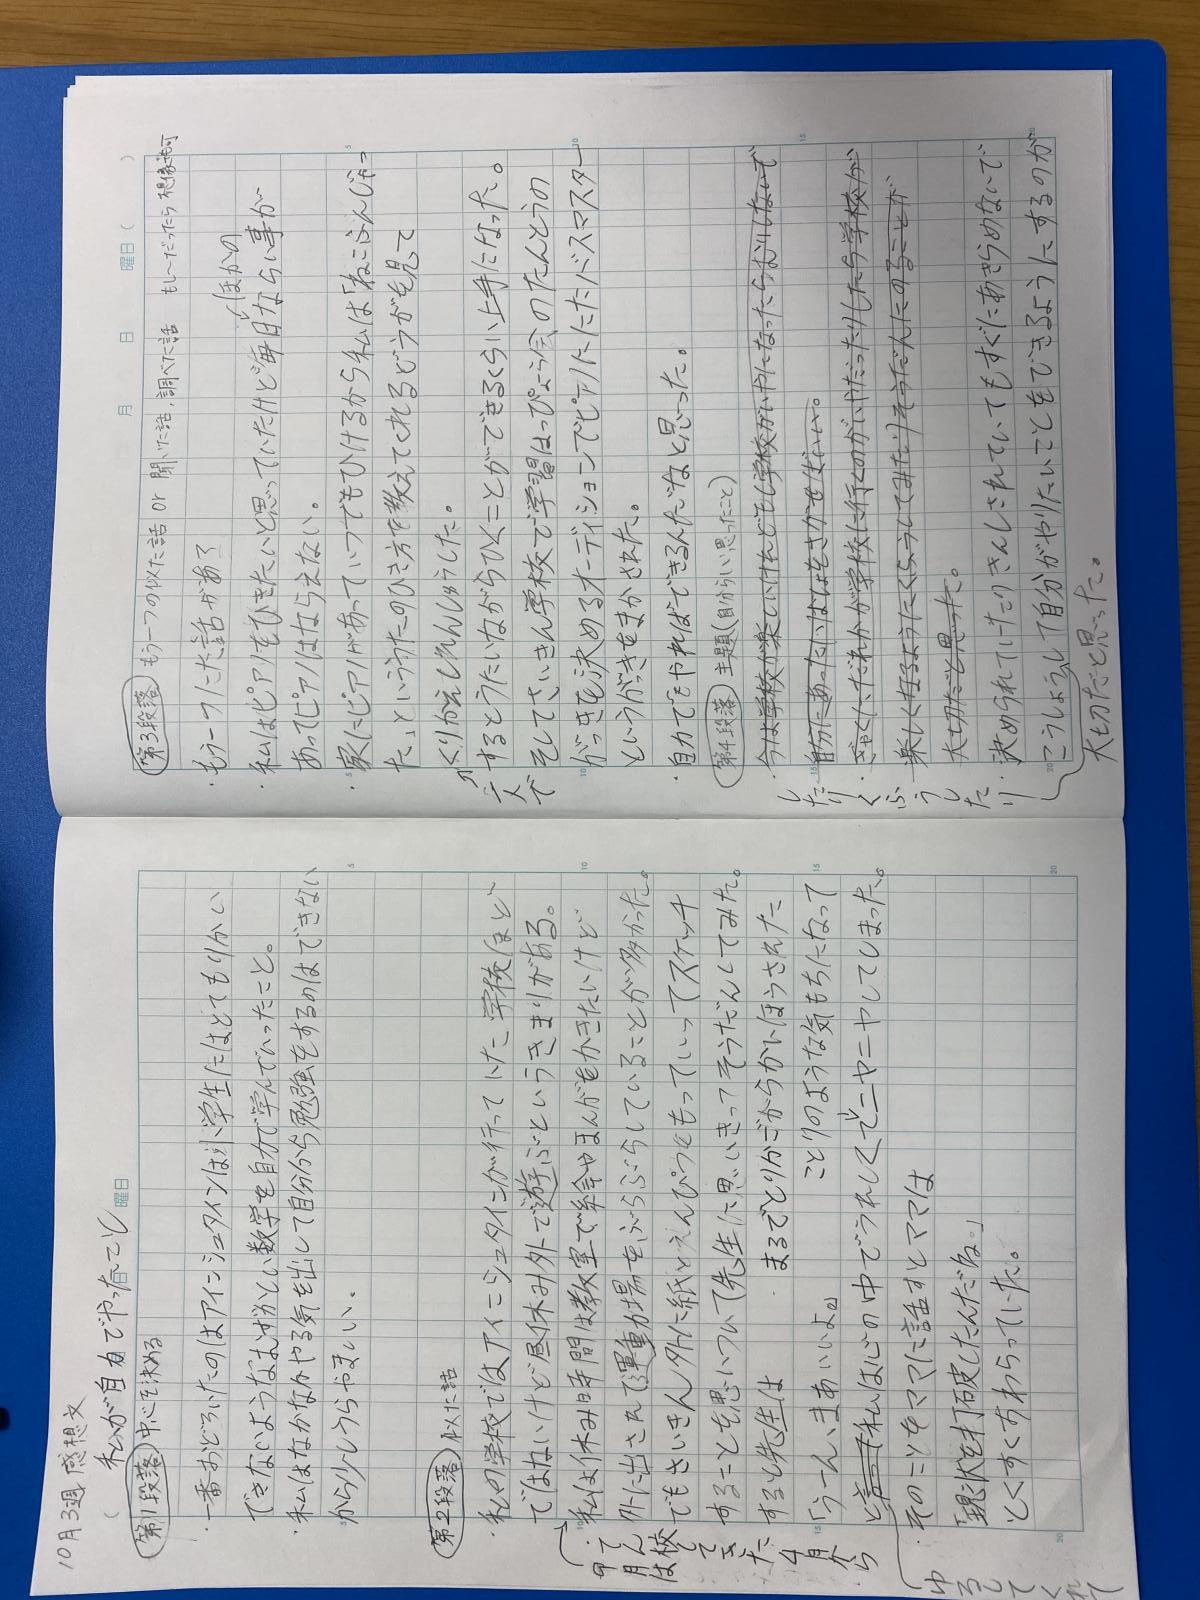 10月3週 感想文
私が自力でやったこと
曜日
第1段落 中心を決める
・一番おどろいたのはアインシュタインは小学生にはとてもりかい
できないようなむずかしい数学を自分で学んでいったこと。
・私はなかなかやる気を出して自分から勉強をするのはできない
から少しうらやましい。
第2段落 似た話
・私の学校ではアインシュタインが行っていた学校ほど
ではないけど昼休み外で遊ぶというきまりがある。
・私は休み時間は教室で絵やまんがをかきたいけど
4月から9月は
てん校してきた
外に出されて運動場をぶらぶらしていることが多かった。
でもさいきん外に紙とえんぴつをもっていってスケッチ
することを思いついて先生に思いきってそうだんしてみた。
すると先生は
まるでとりかごからかいほうされた
「うーん、まあいいよ。」
ことりのような気もちになって
と言って私は心の中でうれしくてニヤニヤしてしまった。
ゆるしてくれて
そのことをママに話すとママは
「現状を打破したんだね。」
とくすくすわらっていた。
5
10
15
20
月 日 曜日 ( )
第3段落 もう一つの似た話 or 聞いた話、調べた話 もし〜だったら 想像も可
・もう一つにた話がある
ほかの
・私はピアノをひきたいと思っていたけど毎日ならい事が
あってピアノはならえない。
・家にピアノがあっていつでもひけるから私は「ねこふんじゃっ
た」といううたのひき方を教えてくれるどうがを見て
くりかえしれんしゅうした。
するとうたいながらひくことができるくらい上手になった。
そしてさいきん学校で学習はっぴょう会のたんとうの
がっきを決めるオーディションでピアノ
というがっきをまかされた。
・自力でもやればできるんだなと思った。
第4段落 主題(自分らしい思ったこと)
・今は学校が楽しいけれどもし学校がいやになったらむりしないで
自分にあったいばしょをさがせばいい。
・ぎゃくにだれかが学校に行くのがいやだったりしたら学校が
楽しくなるようにくふうしてみたりそうだんにのることが
大切だと思った。
・決められていたりきんしされていてもすぐにあきらめないで
こうしょうして自分がやりたいことをできるようにするのが
したりくふうしたり
大切だと思った。
5
10
15
20